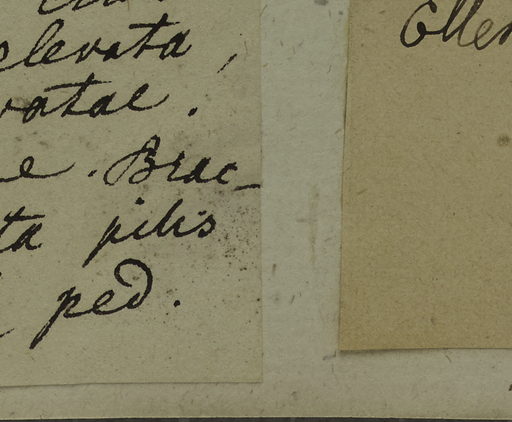 elevata,
vatae.
e. Brac-
ta pilis
ped.
Ellen